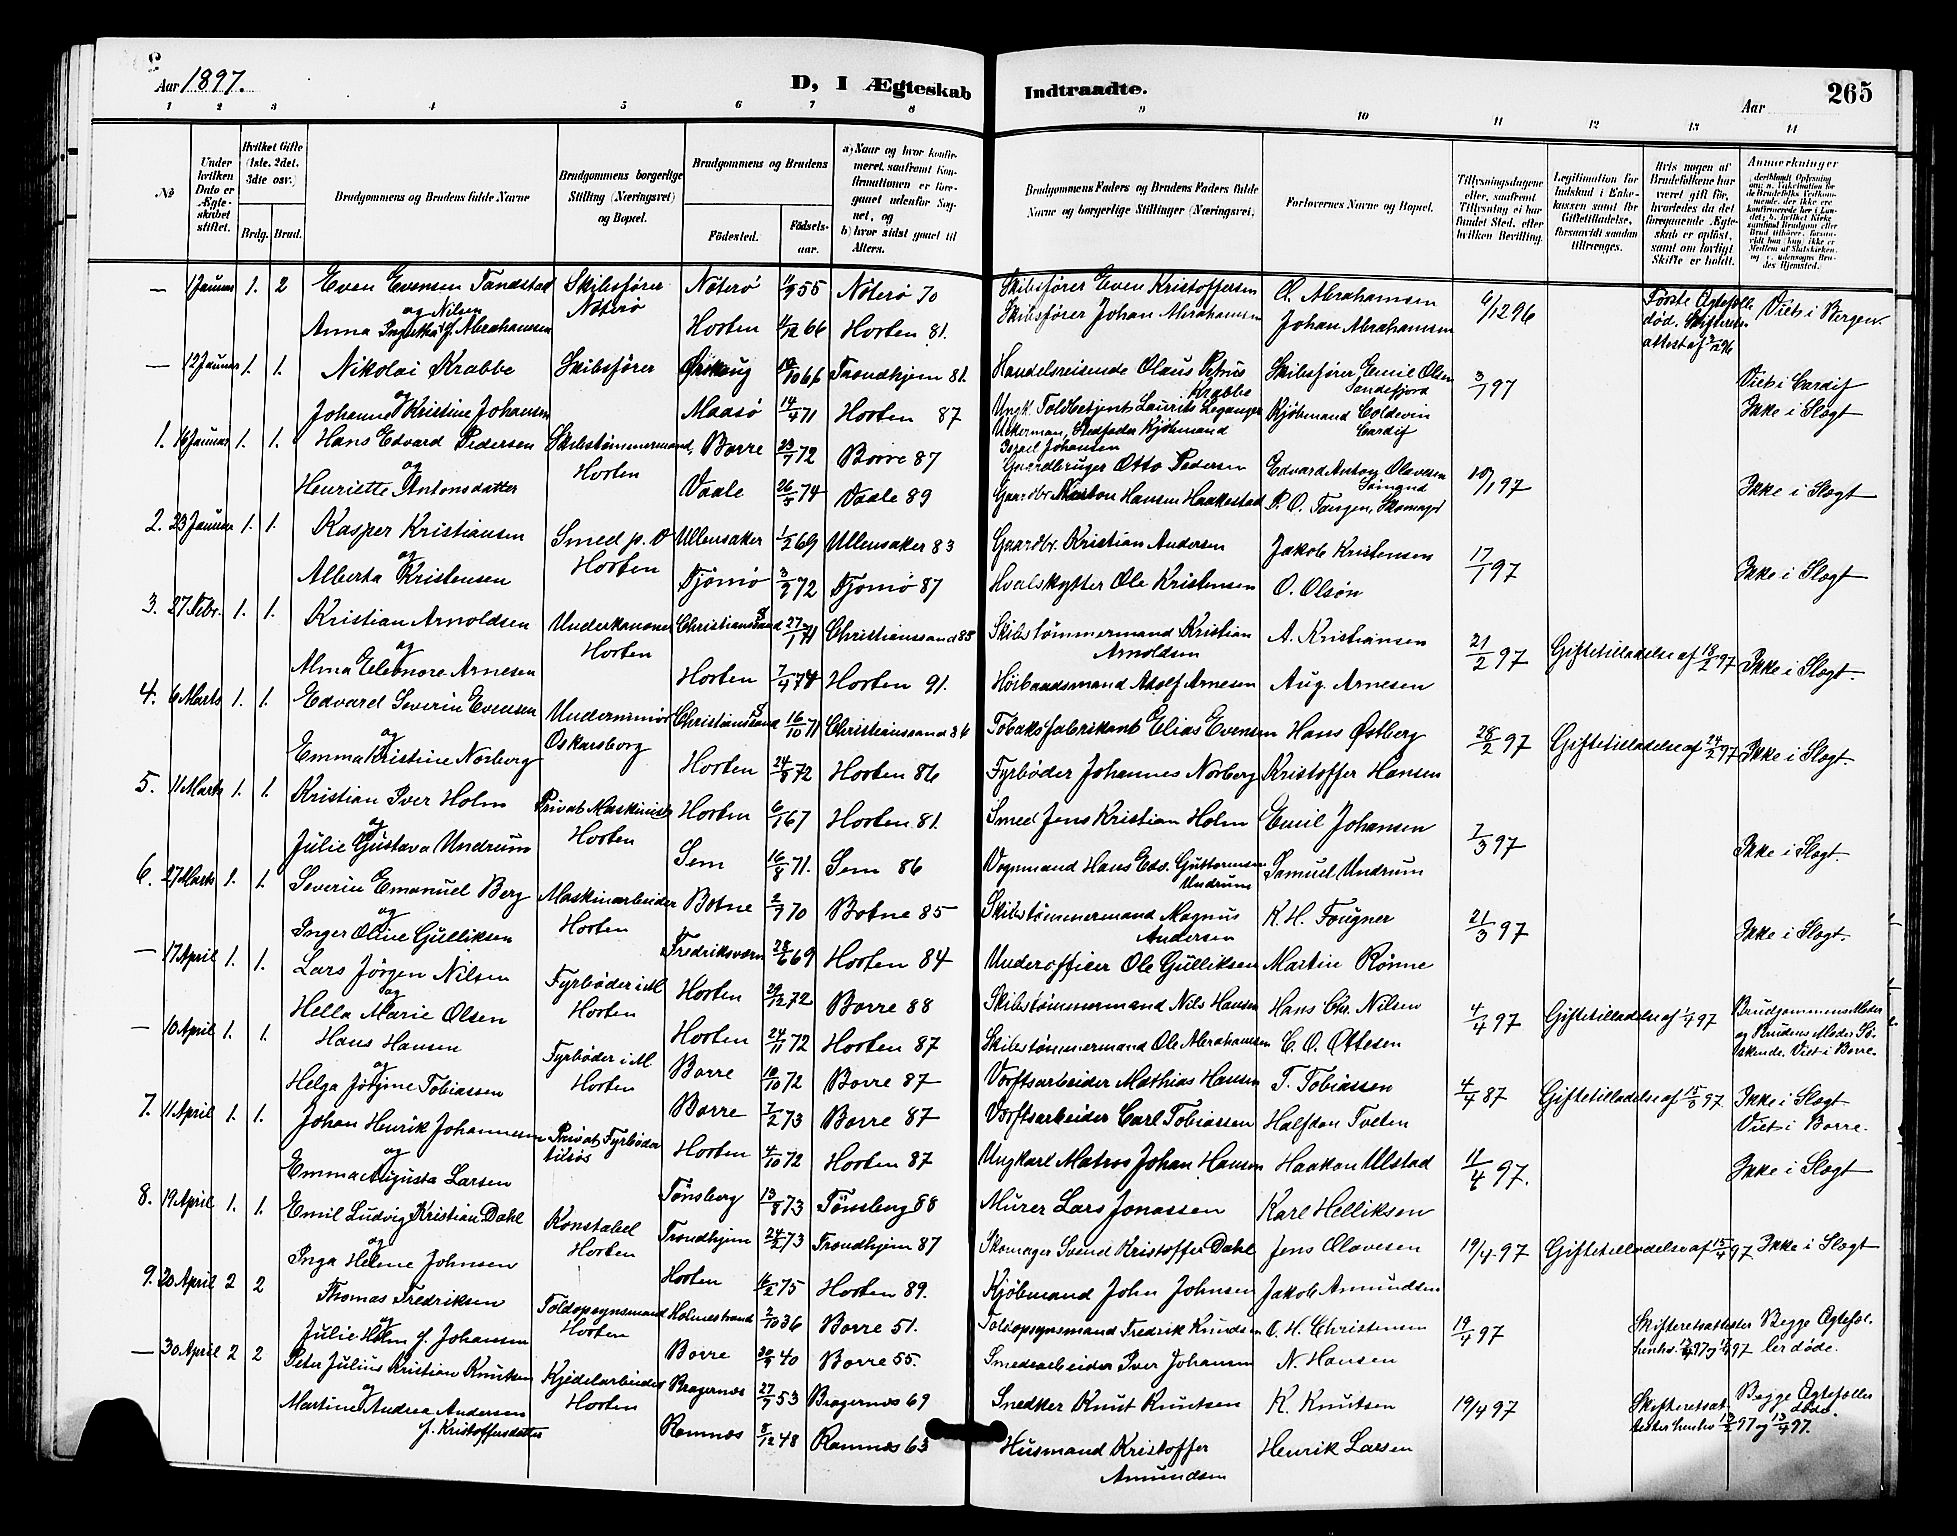 Aar 1897.
D, I Ægteskab Indtraadte.
Aar
265
1 2 3 4 5 6 7 8 9 10 11 12 13 14
No
Under hvilken Dato er Ægteskabet stiftet.
Hvilket Gifte (1ste, 2det, 3die osv.)
Brdg. Brud.
Brudgommens og Brudens fulde Navne
Brudgommens borgerlige Stilling (Næringsvei) og Bopæl.
Brudgommens og Brudens
Fødested.
Fødselsaar.
a) Naar og hvor konfirmeret, saafremt Konfirmationen er foregaaet udenfor Sognet, og
b) hvor sidst gaaet til Alters.
Brudgommens Faders og Brudens Faders fulde Navne og borgerlige Stillinger (Næringsvei.
Forlovernes Navne og Bopæl.
Tillysningsdagene eller, saafremt Tillysning ei har fundet Sted, efter hvilken Bevilling.
Legitimation for Indskud i Enkekassen samt for Giftetilladelse, forsaavidt saadan tiltrænges.
Hvis nogen af Brudefolkene har været gift før, hvorledes da det foregaaende Ægteskab er opløst, samt om lovligt Skifte er holdt.
Anmerkninger
— 1 Januar 1. 2 Even Evensen Tandstad Skibsfører Nøterø 55 Nøterø 70 Skibsfører Even Kristoffersen O. Abrahamsen 6/12 96 Første Ægtefelle død. Skifterets attest af Viet i Bergen.
og Nilsen Nøterø
Anna f. Abrahamsen Horten 66 Horten 81. Skibsfører Johan Abrahamsen Johan Abrahamsen
— 12 Januar 1. 1. Nikolai Krabbe Skibsfører 66 Trondhjem 81. Handelsreisende Olaus Petrus Krabbe Skibsfører Emil Olsen Sandefjord 3/1 97 Viet i Cardif
og
Johanne Kristine Johansen Maasø 14/4 71 Horten 87 Ungk. Toldbetjent Laurits Leganger Uckerman, Stedfader Kjøbmand Israel Johansen Kjøbmand Coldevin Cardif Ikke i Slægt
1. 16 Januar 1. 1. Hans Edvard Pedersen Skibstømmermand, Borre 23/7 72 Borre 87 Gaardbruger Otto Pedersen Edvard Anton Olavesen Sømand 10/1 97 Ikke i Slægt
og Horten
Henriette Antonsdatter Vaale 26/5 74 Vaale 89 Gaardbr. Marton Hansen Haakestad P. O. Tangen, Skomager
2. 23 Januar 1. 1. Kasper Kristiansen Smed p. V Ullensaker 1/2 69 Ullensaker 83 Gaardbr. Kristian Andersen Jakob Kristensen 17/1 97 Ikke i Slægt
og Horten
Alberta Kristensen Tjømø 3/2 72 Tjømø 87 Hvalskytter Ole Kristensen O. Olsøn
3. 27 Febr. 1. 1. Kristian Arnoldsen Underkanoner Christianssand 27/1 71 Christianssand 85 Skibstømmermand Kristian Arnoldsen A. Kristiansen 21/2 97 Giftetilladelse af 18/2 97 Ikke i Slægt.
og Horten
Alma Eleonore Arnesen Horten 7/4 74 Horten 91. Havbaadsmand Adolf Arnesen Aug. Arnesen
4. 6 Marts 1. 1. Edvard Severin Evensen Underminør Christianssand 16/10 71 Christianssand 86 Tobaksfabrikant Elias Evensen Hans Østberg 28/2 97 Giftetilladelse af 24/2 97 Ikke i Slægt.
og Oskarsborg
Emma Kristine Norberg Horten 24/8 72 Horten 86 Fyrbøder Johannes Norberg Kristoffer Hansen
5. 11 Marts 1. 1. Kristian Iver Holm Privat Maskinist Horten 6/1 67 Horten 81. Smed Jens Kristian Holm Emil Johansen 7/3 97 Ikke i Slægt.
og Horten
Julie Gustava Undrum Sem 16/8 71. Sem 86 Vognmand Hans Eds. Guttormsen Undrum Samuel Undrum
6. 27 Marts 1. 1. Severin Emanuel Berg Maskinarbeider Botne 2/7 70 Botne 85 Skibstømmermand Magnus Andersen K. H. Fougner 21/3 97 Ikke i Slægt.
og Horten
Inger Oline Gulliksen Fredriksværn 28/6 69 Horten 84 Underofficer Ole Gulliksen Martin Rønne
— 17 April 1. 1. Lars Jørgen Nilsen Fyrbøder i M Horten 29/12 72 Borre 88 Skibstømmermand Nils Hansen Hans Chr. Nilsen 4/4 97 Giftetilladelse af 1/4 97 Brudgommens Moder og Brudens Moder Søskende. Viet i Borre.
og Horten
Hella Marie Olsen Horten 24/11 72 Horten 87 Skibstømmermand Ole Abrahamsen C. O. Ottesen
— 10 April 1. 1. Hans Hansen Fyrbøder i M Borre 10/10 72 Borre 87 Værftsarbeider Mathias Hansen T. Tobiassen 4/4 87 Giftetilladelse af 15/3 97 Ikke i Slægt
og Horten Viet i Borre.
Helga Jørgine Tobiassen Borre 7/2 73 Borre 87 Værftsarbeider Carl Tobiassen Halfdan Tveten
7. 11 April 1. 1. Johan Henrik Johannesen Privat Fyrbøder Horten 4/10 72 Horten 87 Ungkarl Matros Johan Hansen Haakon Ulstad 11/4 97. Ikke i Slægt
og tilsøs
Emma Augusta Larsen Tønsberg 13/8 73 Tønsberg 88 Murer Lars Jonassen Karl Helliksen
8. 19 April 1. 1. Emil Ludvig Kristian Dahl Konstabel Trondhjem 24/2 73 Trondhjem 87 Skomager Svend Kristoffer Dahl Jens Olavesen 19/4 97 Giftetilladelse af 15/4 97 Ikke i Slægt
og Horten
Inga Helene Johnsen Horten 75 Horten 89. Kjøbmand John Johnsen Jakob Amundsen
9. 20 April 2 2 Thomas Fredriksen Toldopsynsmand Holmestrand 2/10 36 Borre 51. Toldopsynsmand Fredrik Knudsen O. H. Christensen 19/4 97 Skifteretsattester henhv. 97 og 97 Begge Ægtefeller døde.
og Horten
Julie Holm f. Johansen Borre 20/9 40 Borre 55. Smedearbeider Iver Johansen N. Hansen
— 30 April 2 2 Peter Julius Kristian Knutsen Kjedelarbeider Bragernes 27/7 53 Bragernes 69 Snedker Knut Knutsen K. Knutsen 19/4 97 Skifteretsattester henhv 97 og 13/4 97. Begge Ægtefeller døde.
og Horten
Martine Andrea Andersen f. Kristoffersdatter Ramnes 8/12 48 Ramnes 63 Husmand Kristoffer Amundsen Henrik Larsen